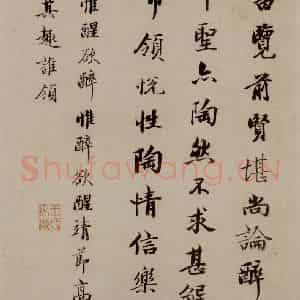 覽前賢堪尚論醉
聖亦陶然不求甚解
領悦性陶情信樂
惟醒欲醉惟醉欲醒靖節高
其趣誰領
Shufawang.CN